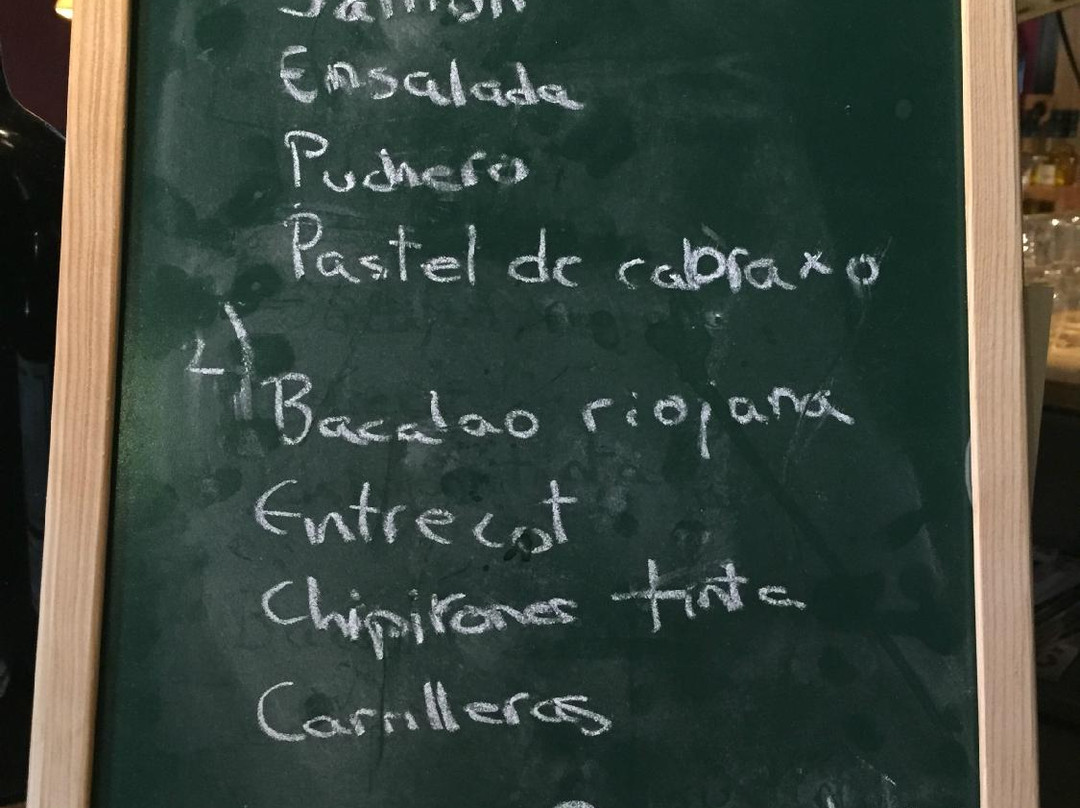 Jamón
Ensalada
Puchero
Pastel de cabraxo
2)
Bacalao riojana
Entrecot
Chipirones tinta
Carrilleras